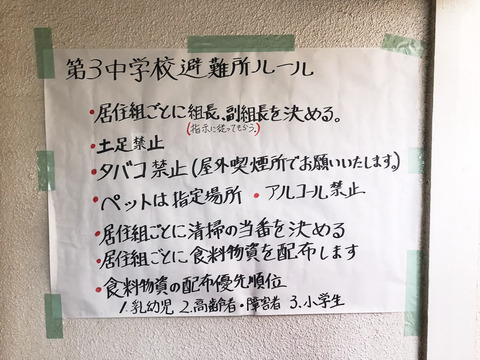 第3中学校避難所ルール
•居住組ごとに組長、副組長を決める。
(指示に従ってもらう。)
•土足禁止
•タバコ禁止(屋外喫煙所でお願いいたします。)
•ペットは指定場所 •アルコール禁止
•居住組ごとに清掃の当番を決める
居住組ごとに食料物資を配布します
•食料物資の配布優先順位
1.乳幼児 2.高齢者・障害者 3.小学生